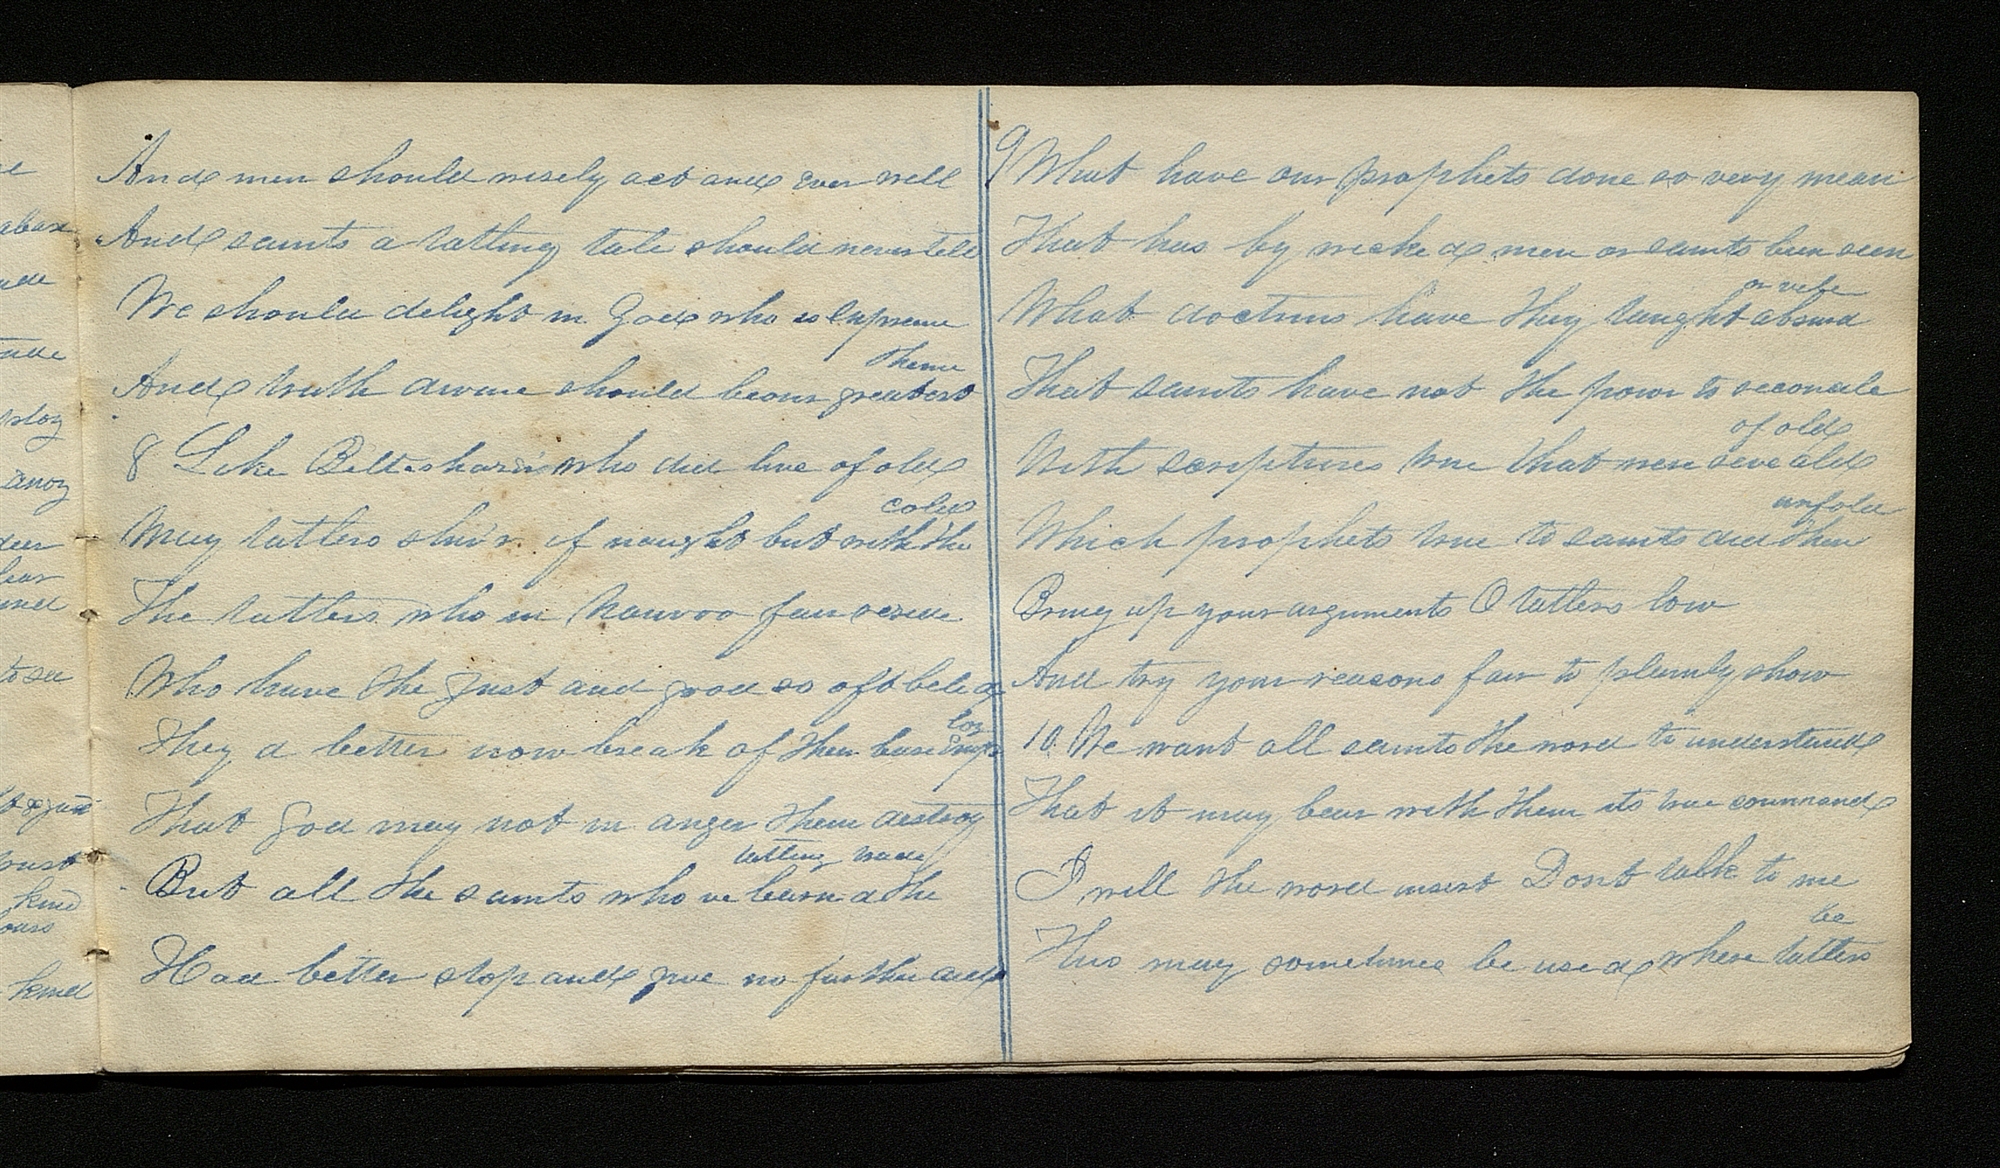 And men should wisely act and ever well
And saints a tatling tale should never tell
We should delight in God who is Supreme
theme
And truth divine should be our greatest
8 Like Belteshazar who did live of old
cold
May tatlers shiv'r if naught but with the
The tatlers who in Nauvoo fair reside
Who have the just and good so oft belied
loy
They d better now break of their base emp
That God may not in anger them destroy
tatling trade
But all the saints who ve learn d the
Had better stop and give no further aid
9 What have our prophets done so very mean
That has by wicked men or saints been seen
or vile
What doctrins have they taught absurd
That saints have not the power to reconcile
of old
With scriptures true that were reveald
unfold
Which prophets true to saints did then
Bring up your arguments O tatlers low
And try your reasons fair to plainly show
10. We want all saints the word to understand
That it may bear with them its true command
I will the word insert Dont talk to me
be
This may sometimes be used where tatlers
abax
ude
ploy
anoy
deer
fear
ind
to see
kind
ours
kind